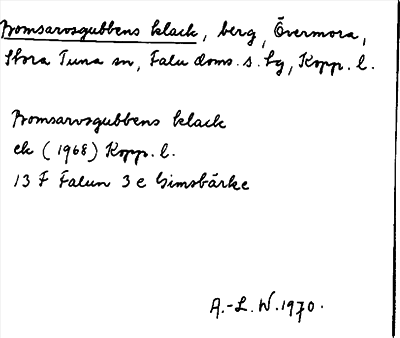 Bomsarvsgubbens klack, berg, Övermora,
Stora Tuna sn, Falu doms. s. tg, Kopp. l.
Bomsarvsgubbens klack
ek (1968) Kopp. l.
13 F Falun 3 e Gimsbärke
A.-L. W. 1970.